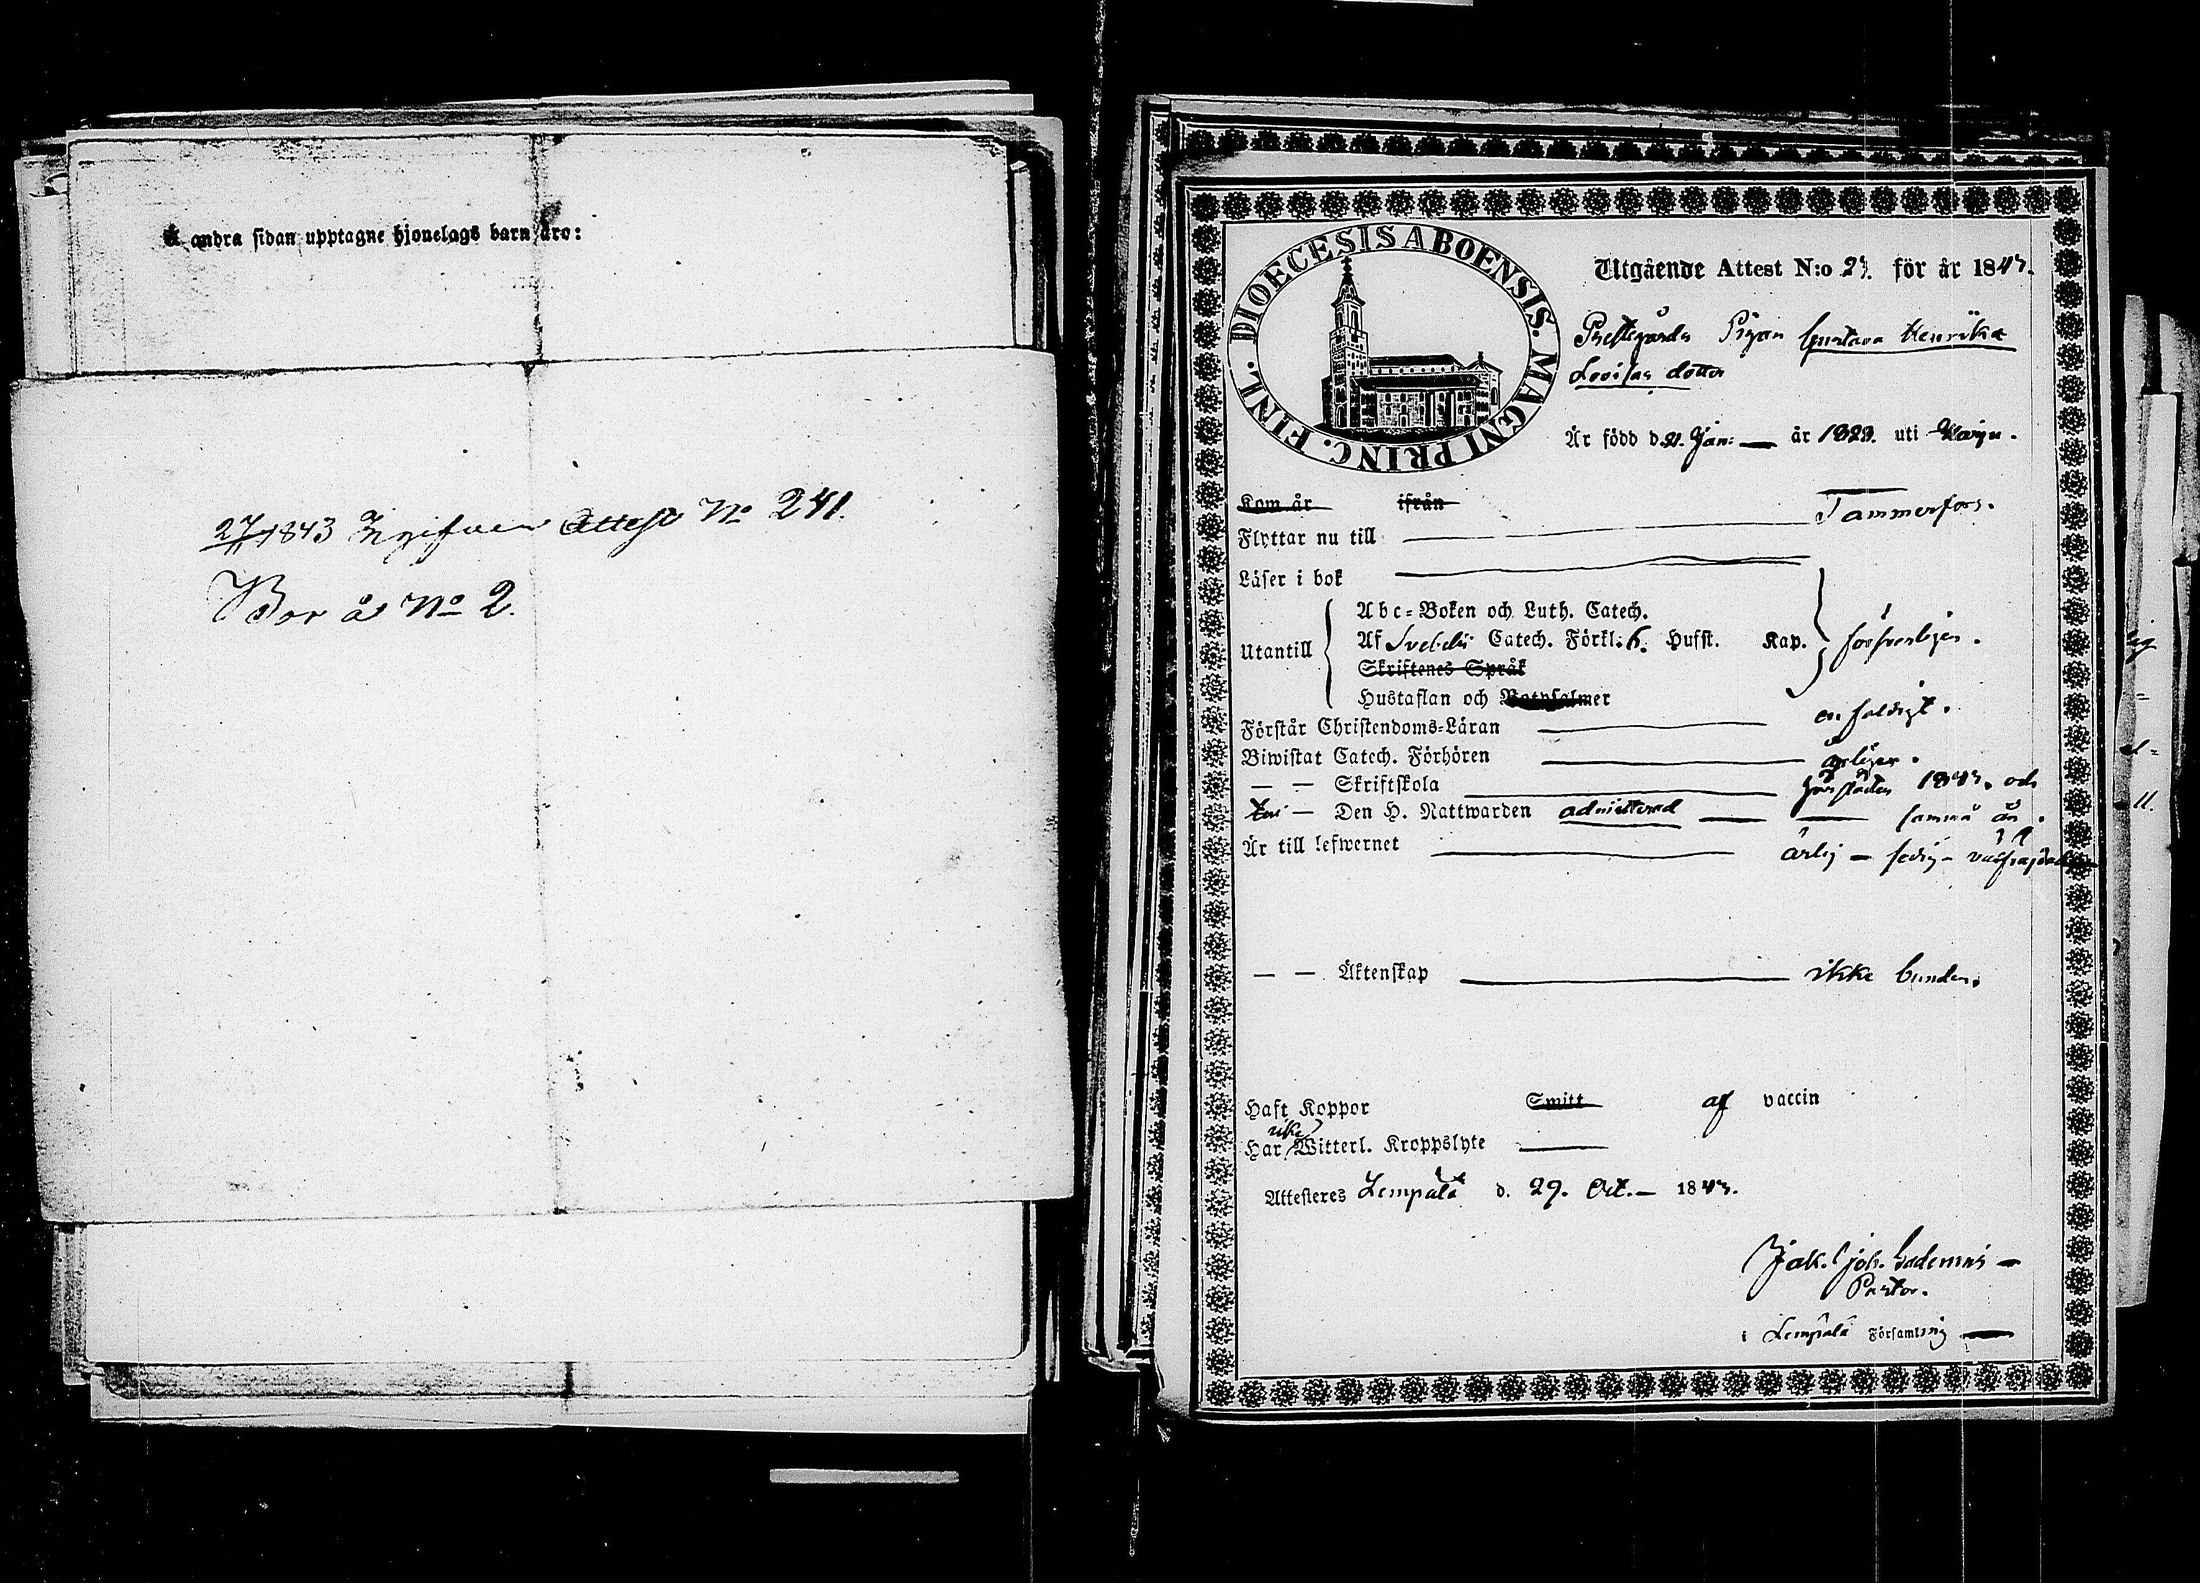 Å andra sidan upptagne hjonelags barn äro:
27/11 1843 Ingifven Attest No 241.
Bor å No 2.
DIOECESIS ABOENSIS. MAGNI PRINC. FINL.
Utgående Attest N:o 27. för år 1843.
Prestgårds Pigan Gustava Henrika
Lovisas dotter
Är född d. 21. Jan: — år 1823. uti
Kom år ifrån
Flyttar nu till Tammerfors.
Läser i bok
Utantill
Abc-Boken och Luth. Catech.
Af Svebelii Catech. Förkl. 6. Hufst. Kap. försvarligen.
Skriftenes Språk
Hustaflan och Botpsalmer
Förstår Christendoms-Läran enfaldigt.
Biwistat Catech. Förhören årligen.
— — Skriftskola 1843. och
— Den H. Nattwarden admitterad — — samma år.
Är till lefwernet ärlig — fredig —
— — Äktenskap ikke bunden.
Haft Koppor Smitt af vaccin
Har ikke Witterl. Kroppslyte
Attesteres Lempälä d. 29. Oct. — 1843.
Jak. Joh. Gadenius —
Pastor.
i Lempälä Församling